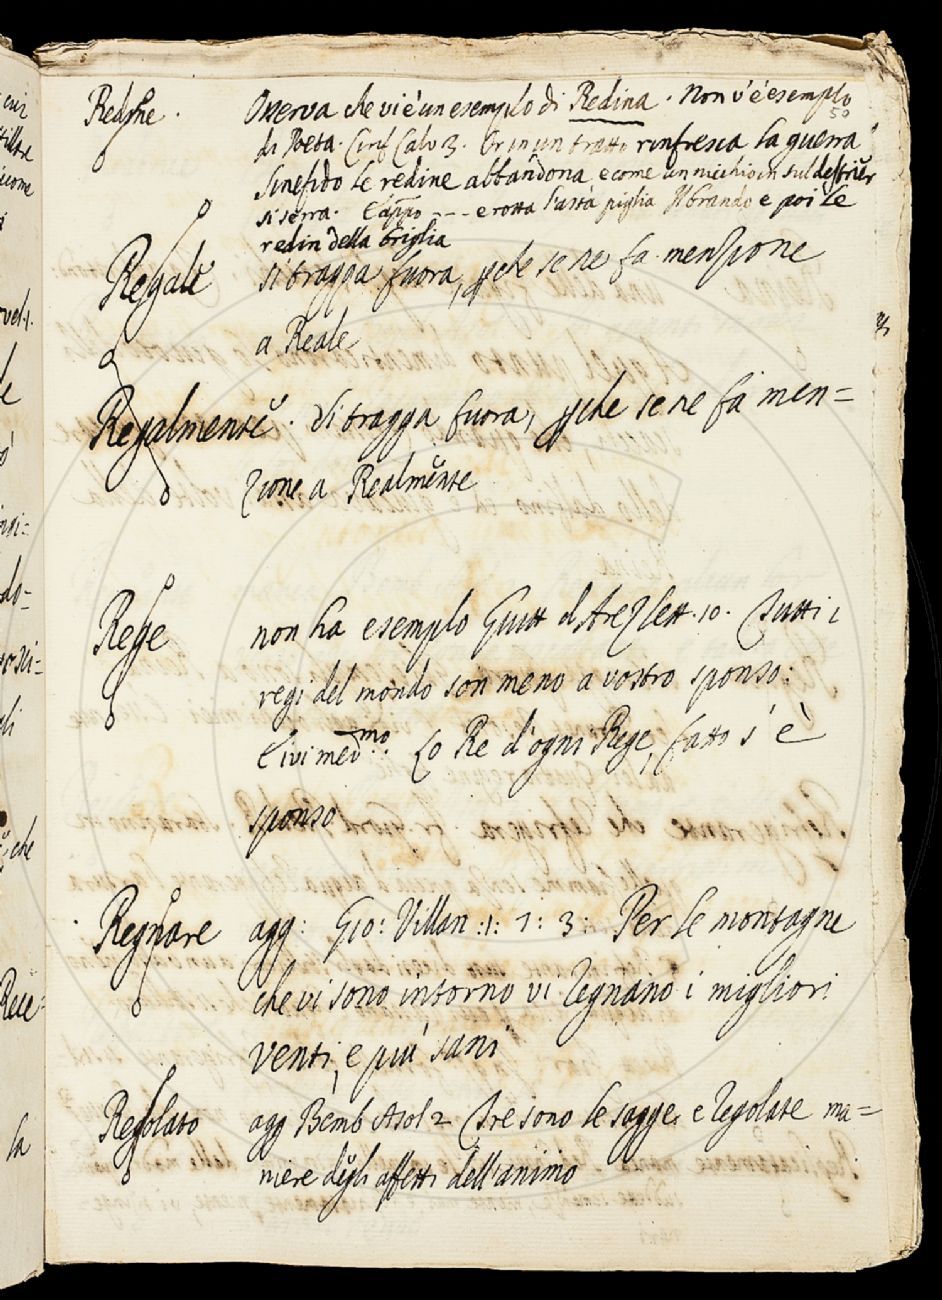 Redine. Osserva che vi è un esemplo di Redina. Non v'è esemplo
50
di Poeta. Cirif Calv 3. Or in un tratto rinfresca la guerra
Sinefido le redine abbandona e come un nicchio in sul destriēr
si serra. E appo --- e rotta l'asta piglia Il brando e poi le
redin della briglia
Regale si tragga fuora, perche se ne fa menzione
a Reale
Regalmentē. Si tragga fuora, perche se ne fa men=
zione a Realmēte
Rege non ha esemplo Guitt d Arez lett. 10. Tutti i
regi del mondo son meno a vostro sponso:
E ivi medmo. Lo Re d'ogni Rege, fatto s'è
sponso
Regnare agg: Gio: Villan :1: 7: 3: Per le montagne
che vi sono intorno vi regnano i migliori
venti, e piú sani
Regolato agg Bemb Asol 2 Tre sono le sagge e regolate ma=
niere degli affetti dell'animo